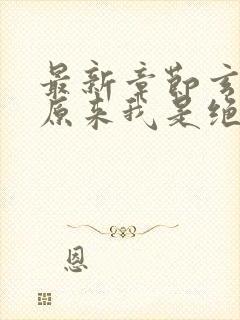 最新章節玄
原来我是绝
恩